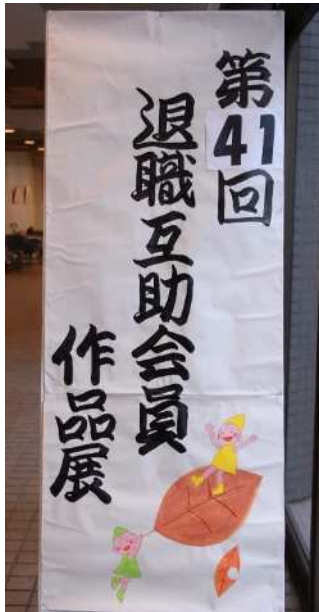 第41回
退職互助会員
作品展